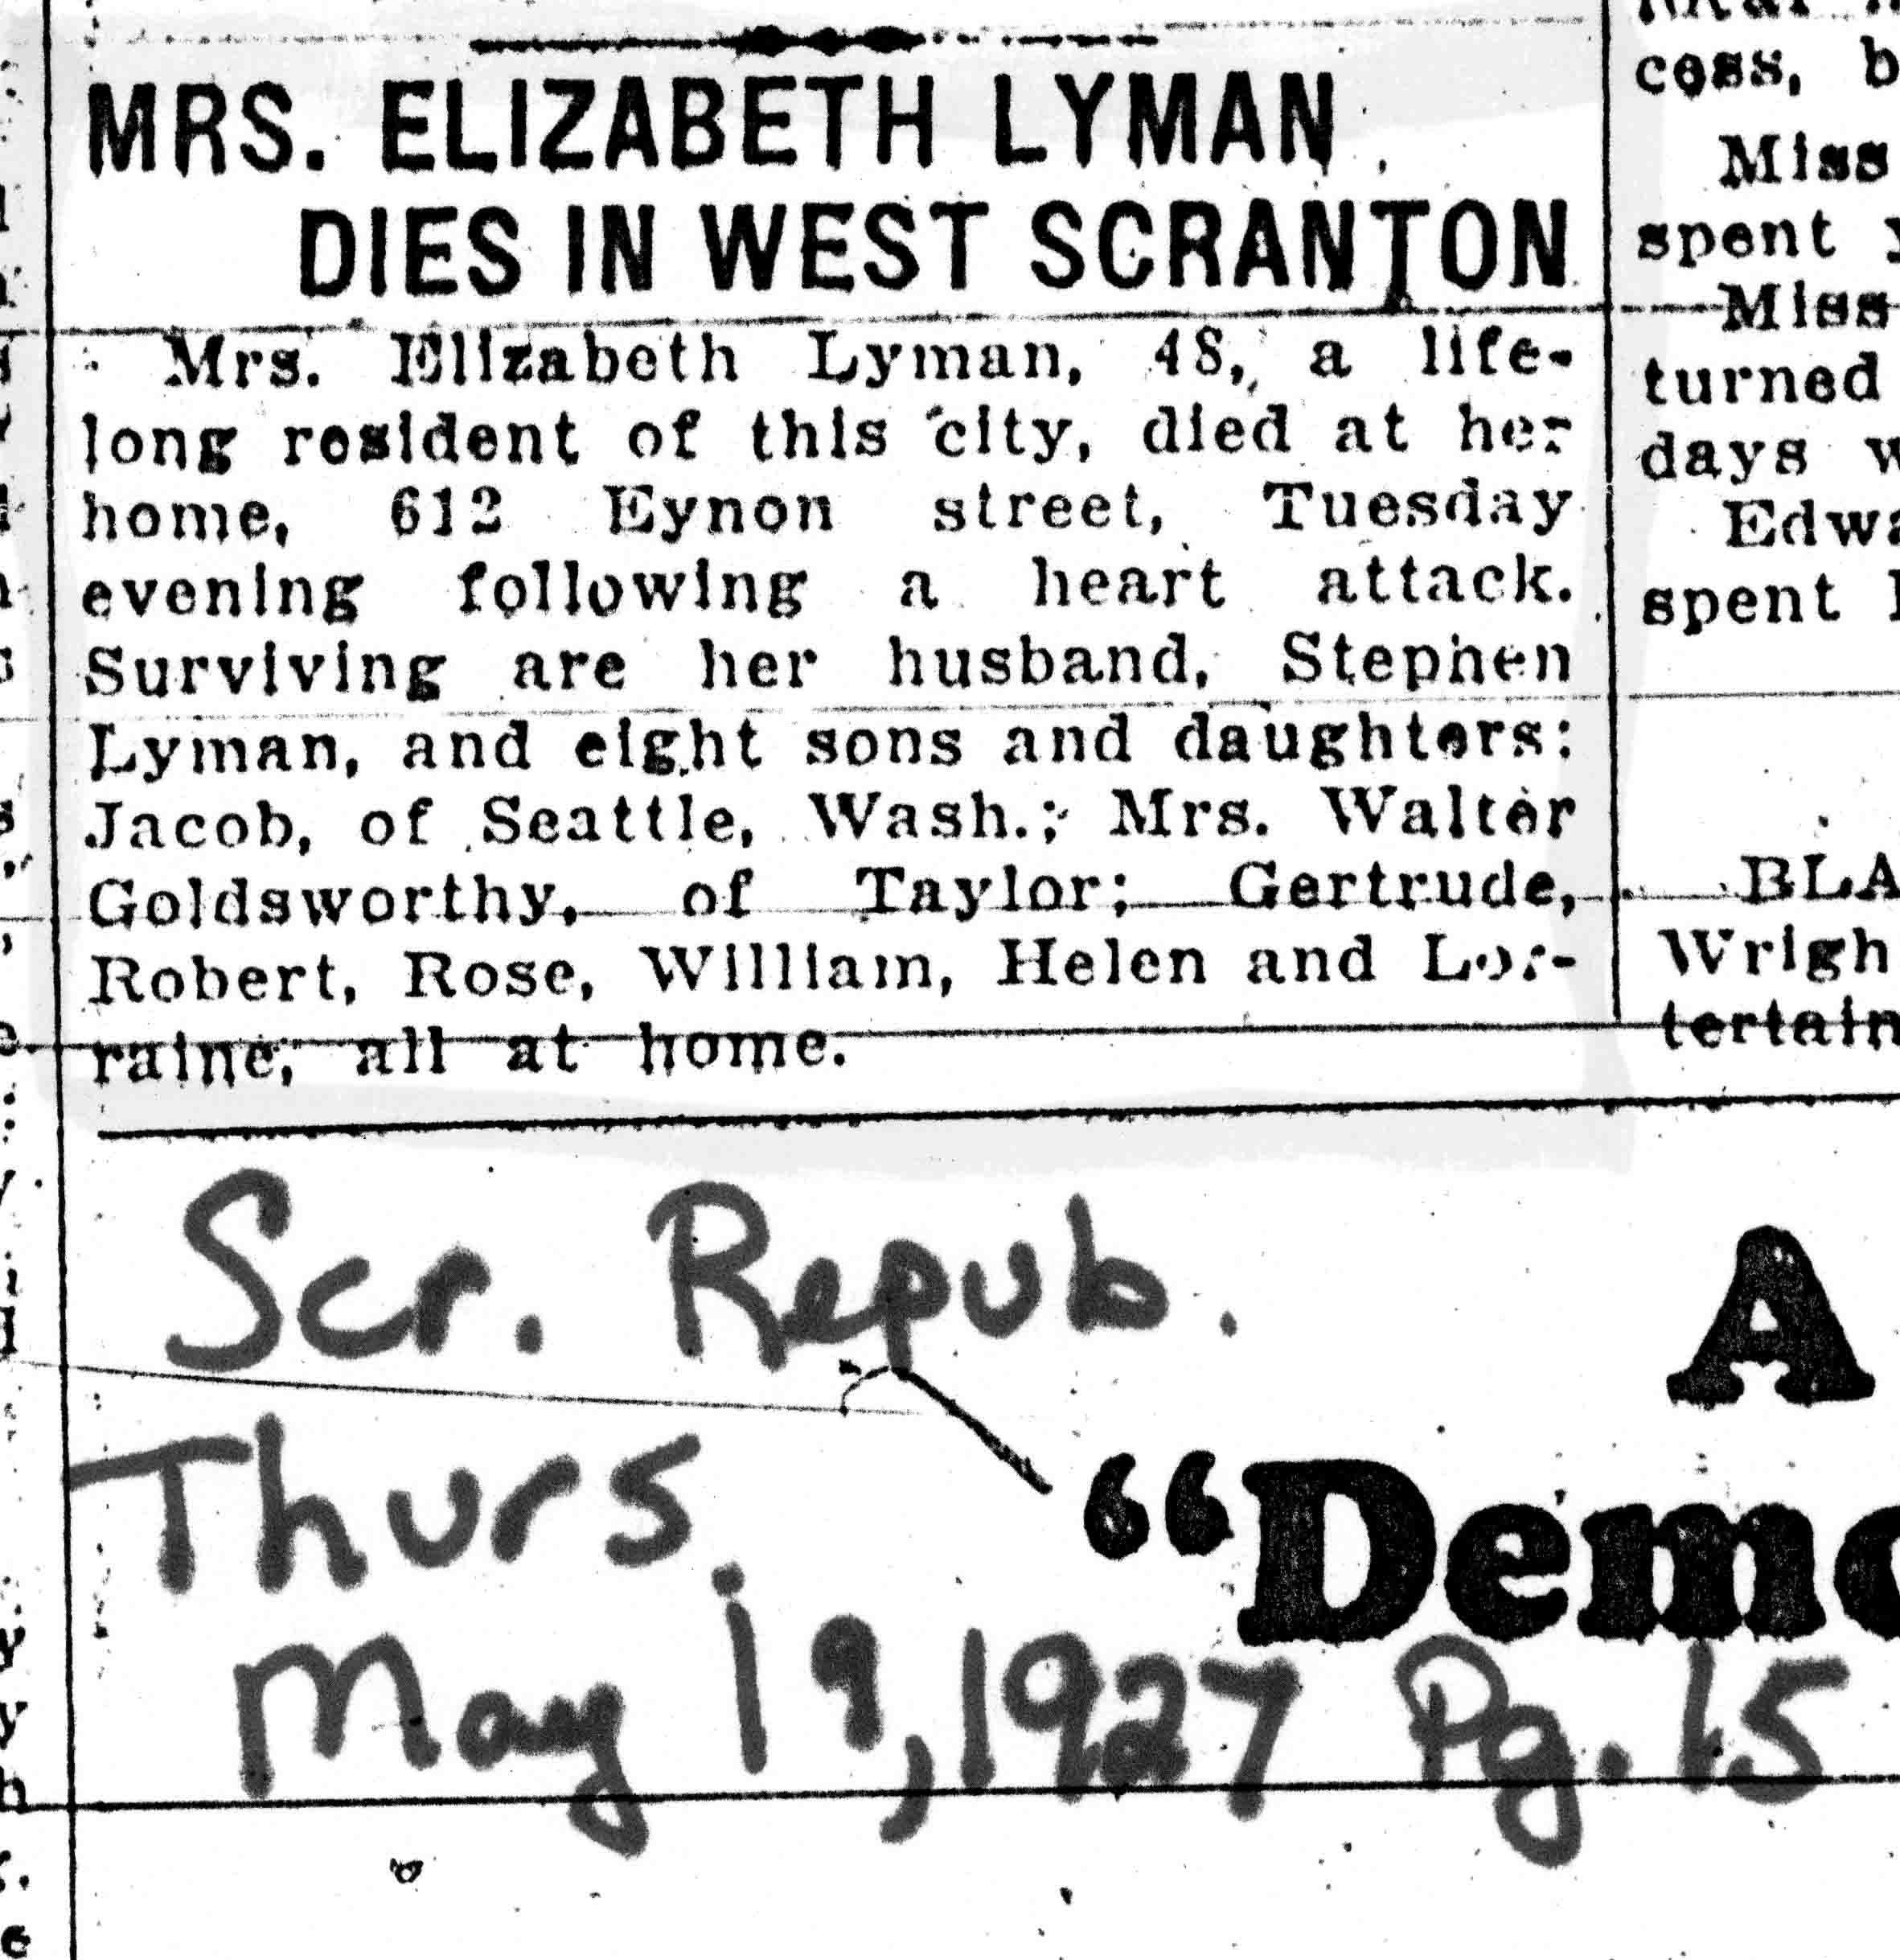 MRS. ELIZABETH LYMAN
DIES IN WEST SCRANTON
Mrs. Elizabeth Lyman, 48, a life-
long resident of this city, died at her
home, 612 Eynon street, Tuesday
evening following a heart attack.
Surviving are her husband, Stephen
Lyman, and eight sons and daughters:
Jacob, of Seattle, Wash.; Mrs. Walter
Goldsworthy, of Taylor; Gertrude,
Robert, Rose, William, Helen and Lor-
raine, all at home.
cess, b
Miss
spent
Miss
turned
days w
Edwa
spent
BLA
Wrigh
tertain
Scr. Repub.
Thurs.
May 19, 1927 Pg. 15
A
“Demo